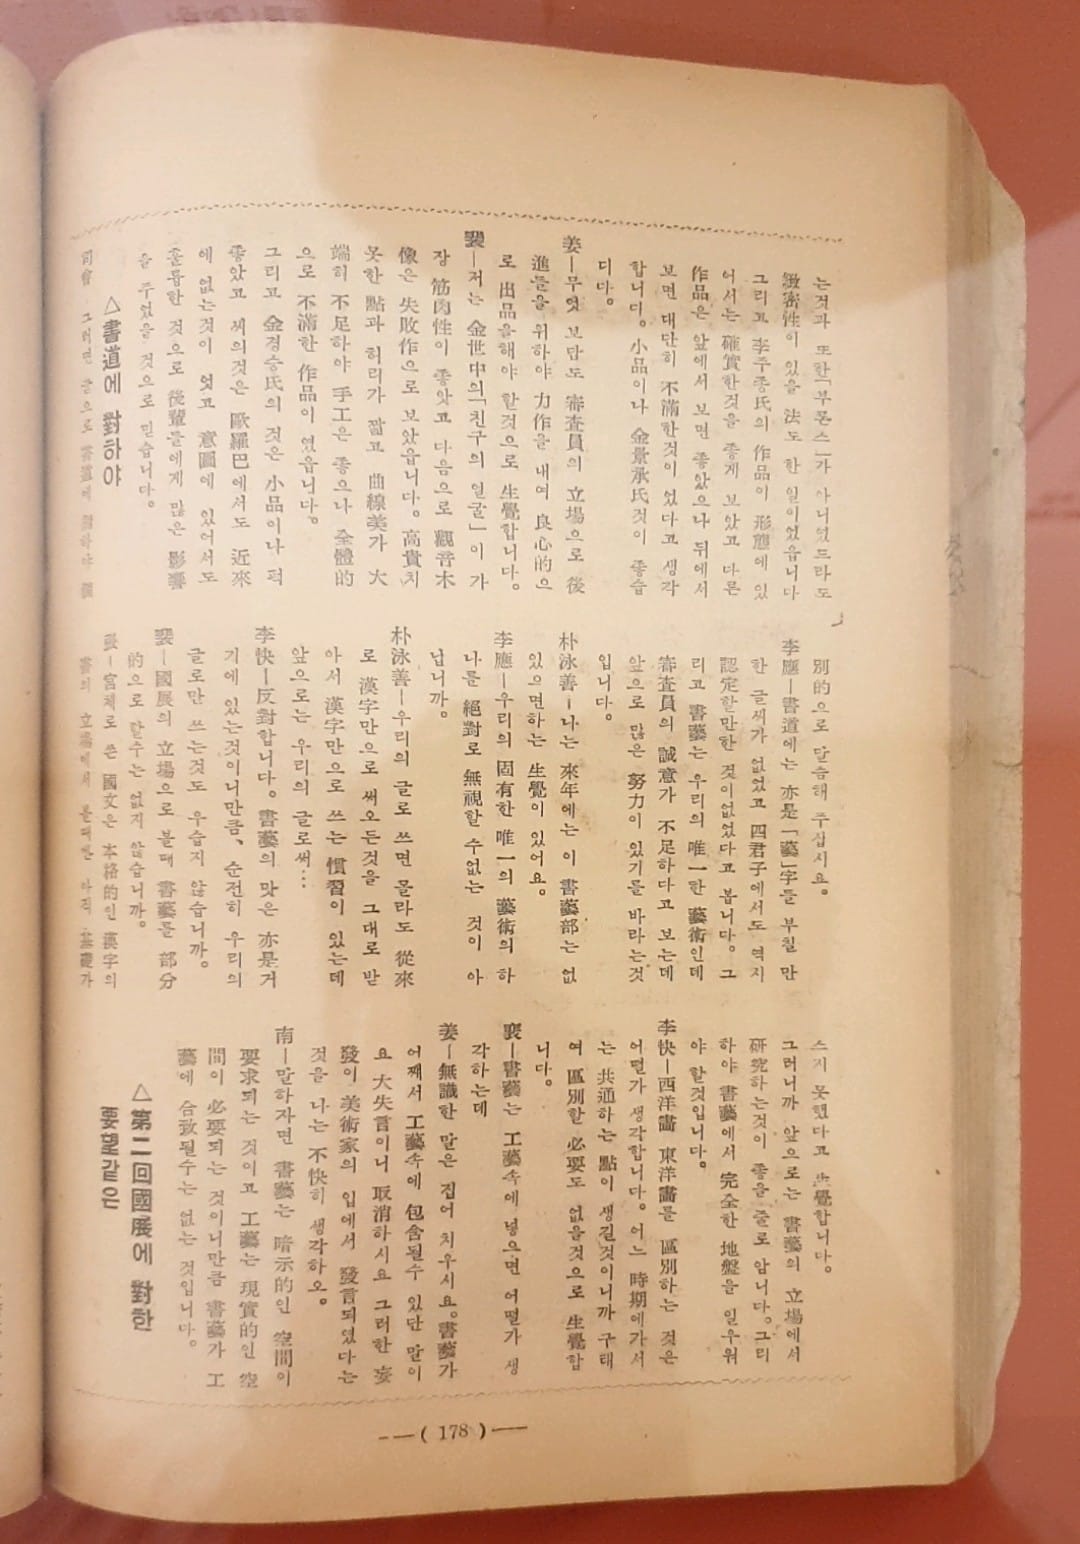 는것과 또한「부론스」가 아니었드라도
緻密性이 있을 法도 한 일이었읍니다
그리고 李주종氏의 作品이 形態에 있
어서는 確實한것을 좋게 보았고 다른
作品은 앞에서 보면 좋았으나 뒤에서
보면 대단히 不滿한것이 었다고 생각
합니다. 小品이나 金景承氏것이 좋습
디다.
姜―무엇 보담도 審査員의 立場으로 後
進들을 위하야 力作을 내여 良心的으
로 出品을해야 할것으로 生覺합니다。
裵―저는 金世中의「친구의 얼굴」이 가
장 筋肉性이 좋앗고 다음으로 觀音木
像은 失敗作으로 보았읍니다。高貴치
못한 點과 허리가 짧고 曲線美가 大
端히 不足하야 手工은 좋으나 全體的
으로 不滿한 作品이 였읍니다。
그리고 金경승氏의 것은 小品이나 퍽
좋았고 씨의것은 歐羅巴에서도 近來
에 없는것이 엇고 意圖에 있어서도
훌륭한 것으로 後輩들에게 많은 影響
을 주었을 것으로 믿습니다。
△書道에 對하야
司會 그러면 끝으로 書道에 對하야 個
別的으로 말슴해 주십시요。
李應―書道에는 亦是「藝」字를 부칠 만
한 글씨가 없었고 四君子에서도 역시
認定할만한 것이없었다고 봅니다。그
리고 書藝는 우리의 唯一한 藝術인데
審査員의 誠意가 不足하다고 보는데
앞으로 많은 努力이 있기를 바라는것
입니다。
朴泳善―나는 來年에는 이 書藝部는 없
있으면하는 生覺이 있어요。
李應―우리의 固有한 唯一의 藝術의 하
나를 絕對로 無視할 수없는 것이 아
닙니까。
朴泳善―우리의 글로 쓰면 몰라도 從來
로 漢字만으로 써오든것을 그대로 받
아서 漢字만으로 쓰는 慣習이 있는데
앞으로는 우리의 글로써…
李快―反對합니다。書藝의 맛은 亦是거
기에 있는것이니만큼、순전히 우리의
글로만 쓰는것도 우습지 않습니까。
裵―國展의 立場으로 볼때 書藝를 部分
的으로 할수는 없지 않습니까。
張―宮체로 쓴 國文은 本格的인 漢字의
書의 立場에서 볼때엔 아직 基礎가
스지 못했다고 生覺합니다。
그러니까 앞으로는 書藝의 立場에서
研究하는것이 좋을 줄로 압니다。그리
하야 書藝에서 完全한 地盤을 일우워
야 할것입니다。
李快―西洋畵 東洋畵를 區別하는 것은
어떨가 생각합니다。어느 時期에가서
는 共通하는 點이 생길것이니까 구태
여 區別할 必要도 없을것으로 生覺합
니다。
裵―書藝는 工藝속에 넣으면 어떨가 생
각하는데
姜―無識한 말은 집어 치우시요。書藝가
어째서 工藝속에 包含될수 있단 말이
요 大失言이니 取消하시요 그러한 妄
發이 美術家의 입에서 發言되였다는
것을 나는 不快히 생각하오。
南―말하자면 書藝는 暗示的인 空間이
要求되는 것이고 工藝는 現實的인 空
間이 必要되는 것이니만큼 書藝가 工
藝에 合致될수는 없는 것입니다。
△第二回國展에 對한
要望같은
―(178)―